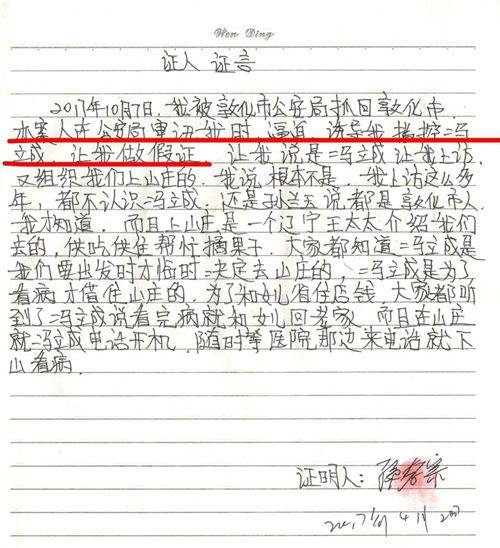 Wen Ding
证人 证言
2017年10月7日，我被敦化市公安局抓回敦化市
本案人在公安局审讯我时，逼迫，诱导我指控冯
立成，让我做假证。让我说是冯立成让我上访
又组织我们上山庄的。我说根本不是，我上访这么多
年，都不认识冯立成，还是孙兰云说都是敦化市人
我才知道，而且上山庄是一个辽宁王太太介绍我们
去的，供吃供住帮忙摘果子，大家都知道冯立成是
我们要出发时才临时决定去山庄的，冯立成是为了
看病才借住山庄的，为了和女儿省住店钱，大家都听
到了冯立成说看完病就和女儿回老家，而且在山庄
就冯立成电话开机，随时等医院那边来电话就下
山看病。
证明人：